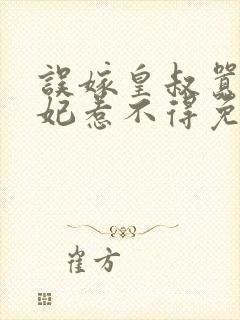 誤嫁皇叔囂
妃惹不得免
崔方